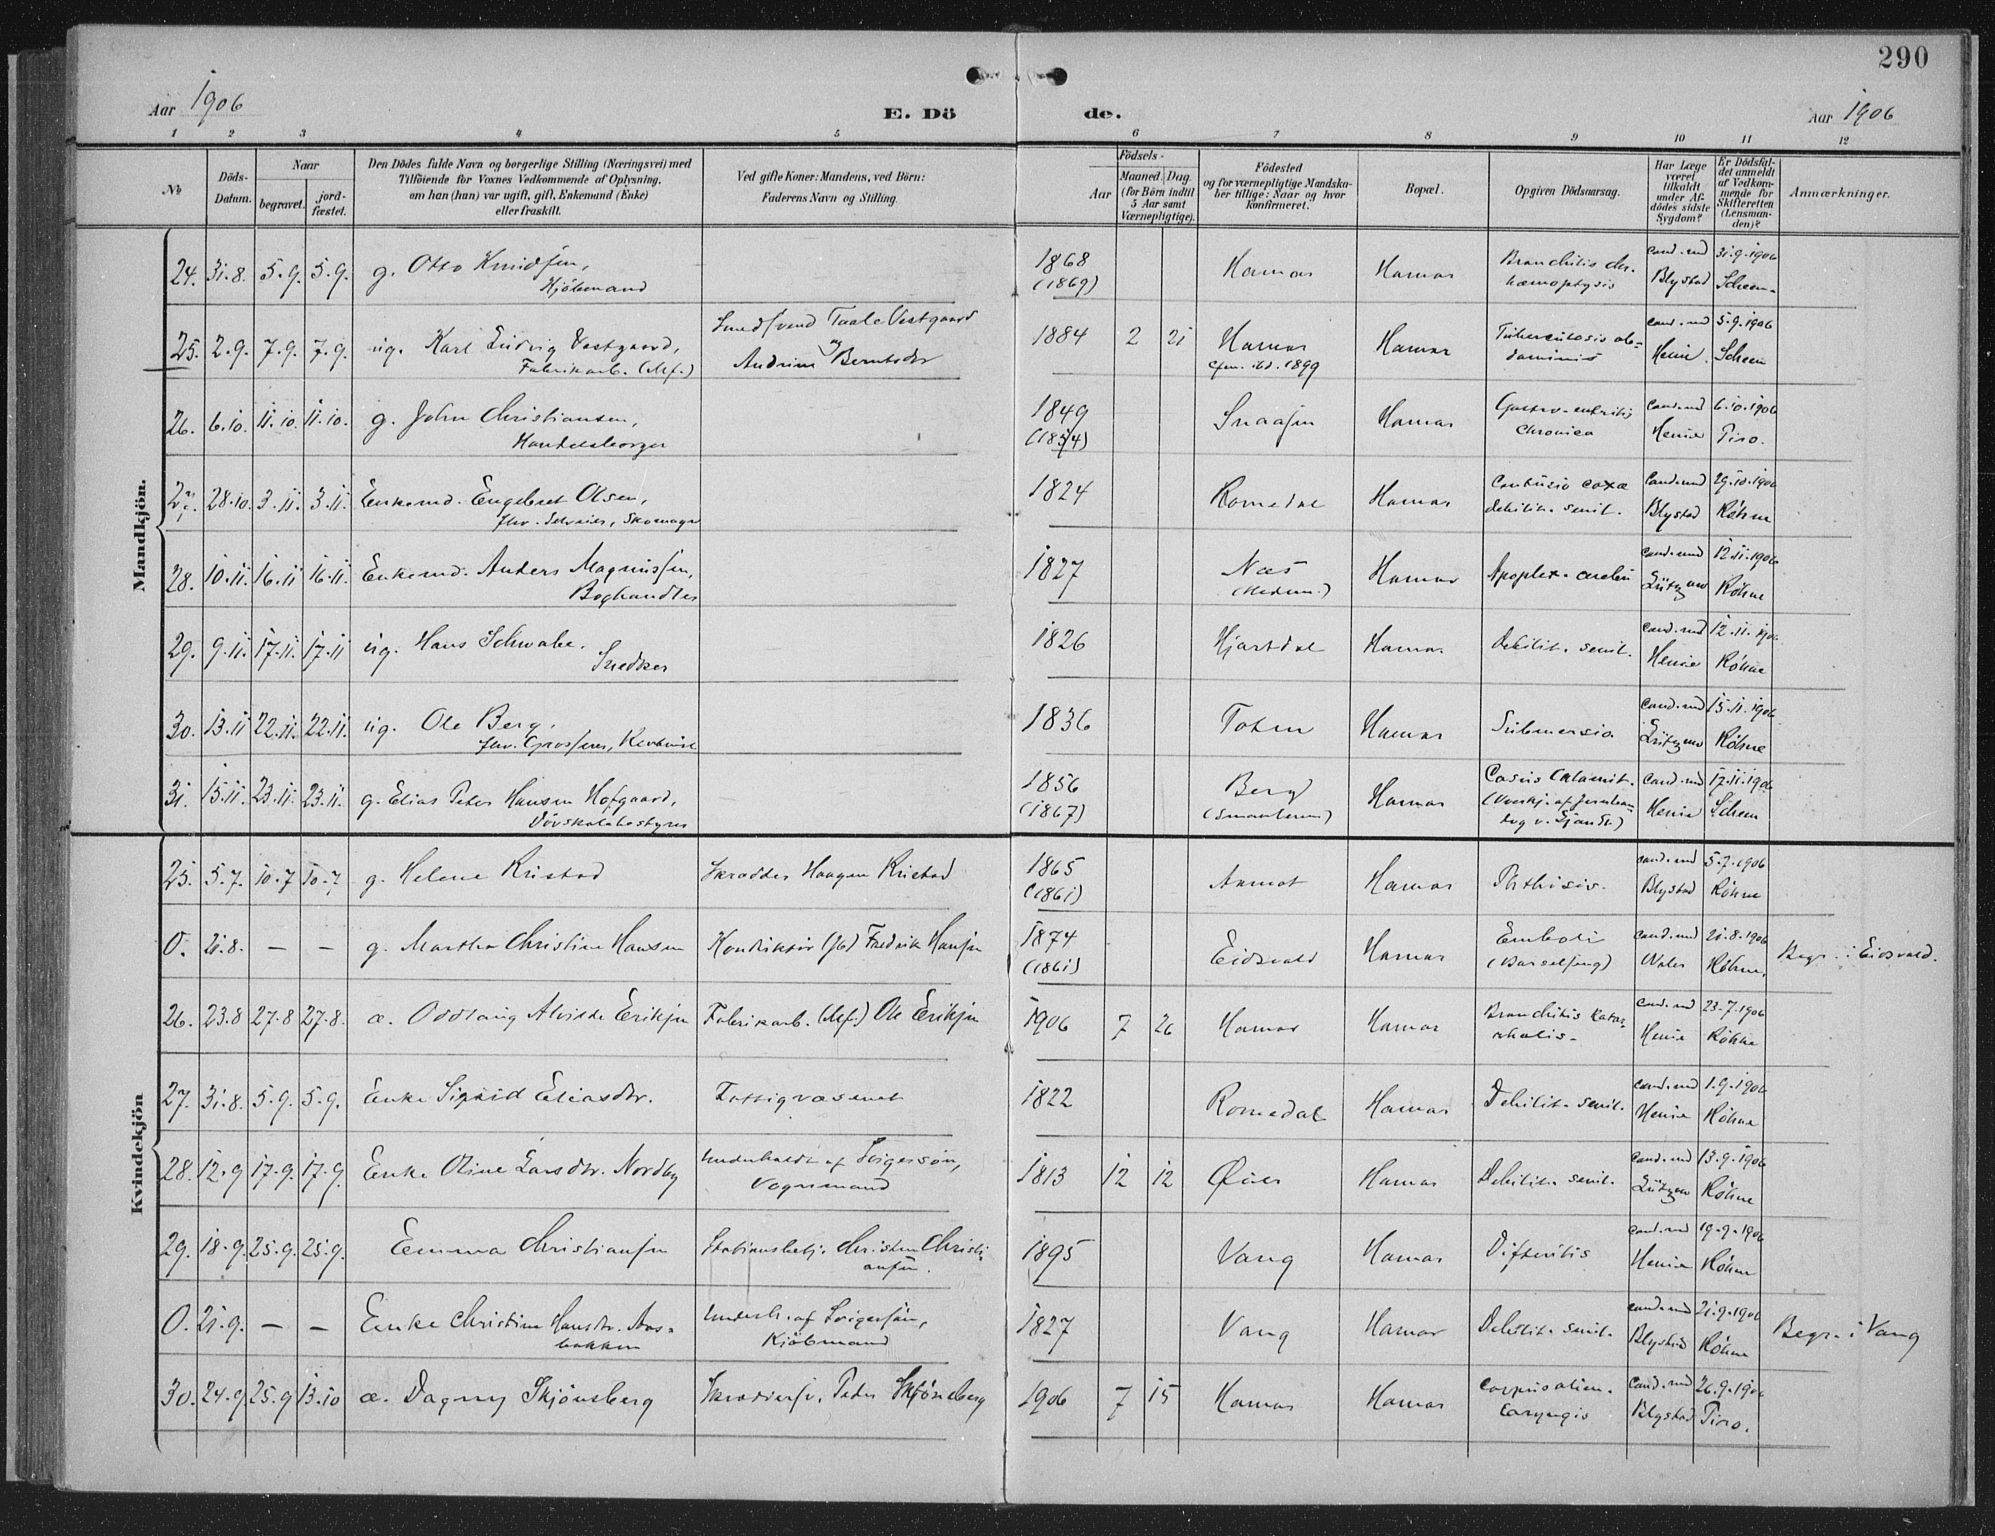 290
Aar 1906
E. Döde.
Aar 1906
1 2 3 4 5 6 7 8 9 10 11 12
No
Döds-Datum.
Naar
begravet.
jord-fæstet.
Den Dödes fulde Navn og borgerlige Stilling (Næringsvei) med
Tilföiende for Voxnes Vedkommende af Oplysning,
om han (hun) var ugift, gift, Enkemand (Enke)
eller fraskilt.
Ved gifte Koner: Mandens, ved Börn:
Faderens Navn og Stilling.
Födsels-
Aar
Maaned. Dag.
(for Börn indtil
5 Aar samt
Værnepligtige).
Födested
og for værnepligtige Mandska-
ber tillige: Naar og hvor
konfirmeret.
Bopæl.
Opgiven Dödsaarsag.
Har Læge
været
tilkaldt
under Af-
dödes sidste
Sygdom?
Er Dödsfal-
det anmeldt
af Vedkom-
mende for
Skifteretten
(Lensman-
den)?
Anmærkninger.
Mandkjön.
24. 31.8. 5.9. 5.9. g. Otto Knudsen, 1868 Hamar Hamar Bronchitis chr. cand. med 31.9.1906
Kjöbmand (1869) hæmophysis Blystad Scheen.
25. 2.9. 7.9. 7.9. ug. Karl Ludvig Vestgaard, Smedsvend Taale Vestgaard 1884 2 21 Hamar Hamar Tuberculosis ab- cand. med 5.9.1906
Fabrikarb. (Mf.) og Andrine Berntsdtr cfm. ibd. 1899 dominis Heme Scheen
26. 6.10. 11.10. 11.10. g. John Christiansen, 1849 Snaasen Hamar Gastro-enteritis cand. med 6.10.1906
Handelsborger (1854) chronica Heme Tiro.
27. 28.10. 3.11. 3.11. Enkemd. Engebret Olsen, 1824 Romedal Hamar Contusio coxæ cand. med 29.10.1906
fhv. Selveier, Skomager debilit. senil. Blystad Röhne
28. 10.11. 16.11 16.11. Enkemd. Anders Magnussen, 1827 Næs Hamar Apoplex. cerebri cand. med 12.11.1906
Boghandler (Hedem.) Lützow Röhne
29. 9.11. 17.11. 17.11 ug. Hans Schwabe. 1826 Hjartdal Hamar Debilit. senil. cand. med 12.11.1906
Snedker Heme Röhne
30. 13.11 22.11. 22.11. ug. Ole Berg. 1836 Toten Hamar Submersio cand. med 15.11.1906
fhv. Grosserer, Lützow Röhne
31. 15.11. 23.11. 23.11. g. Elias Peter Hansen Hofgaard, 1856 Berg Hamar Casus calamit. cand. med 17.11.1906
Dövskolebestyrer (1867) (Smaalenene) (Overkj. af Jernban- Heme Scheen
tog v.
Kvindekjön
25. 5.7. 10.7 10.7 g. Helene Kristad Skrædder Haagen Kristad 1865 Aamot Hamar Phthisis. cand. med 5.7.1906
(1861) Blystad Röhne
0. 21.8. — — g. Martha Christine Hansen Konduktör Fredrik Hansen 1874 Eidsvold Hamar Emboli cand. med 21.8.1906 Begr. i Eidsvold.
(1861) (Barselseng) Röhne,
26. 23.8 27.8 27.8. æ. Oddlaug Alvilde Eriksen Fabrikarb. (Mf.) Ole Eriksen 1906 7 26 Hamar Hamar Bronchitis katar- cand. med 23.7.1906
rhalis. Heme Röhne
27. 31.8. 5.9. 5.9. Enke Sigrid Eliasdtr. Fattigvæsenet 1822 Romedal Hamar Debilit. senil. cand. med 1.9.1906
Heme Röhne
28. 12.9 17.9. 17.9. Enke Oline Larsdtr. Nordby Underholdt af Svigersön, 1813 12 12 Öier Hamar Debilit. senil. cand. med 13.9.1906
Vognmand Lützow Röhne
29. 18.9. 25.9. 25.9. Emma Christiansen Stationsbetj. Christen Christi- 1895 Vang Hamar Difteritis cand. med 19.9.1906
ansen. Heme Röhne
0. 21.9. — — Enke Christine Hansdtr. Aas- Underh. af Svigersön, 1827 Vang Hamar Debilit. senil. cand. med 21.9.1906 Begr. i Vang
bakken Kjöbmand Blystad Röhne
30. 24.9 25.9 13.10 æ. Dagny Skjönsberg Skræddersv. Peder Skjönsberg 1906 7 15 Hamar Hamar Corpus alien. cand. med 26.9.1906
laryngis Blystad Tiro.